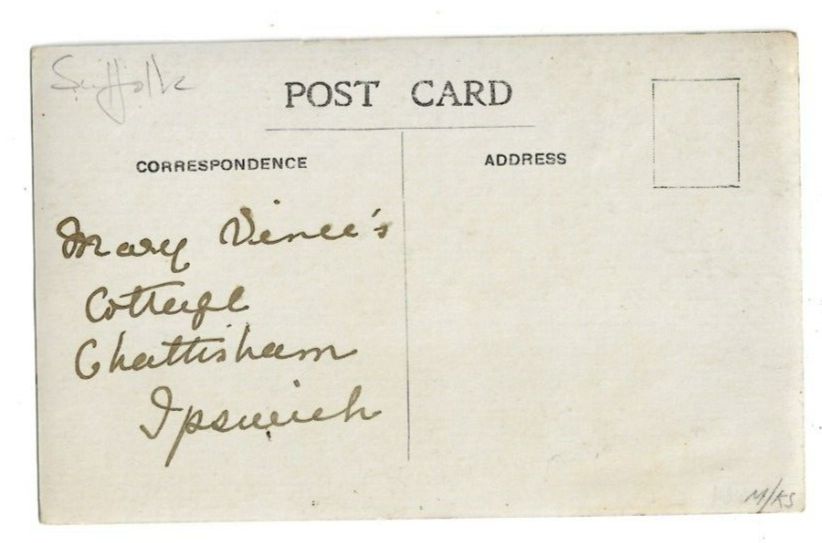 Suffolk
POST CARD
CORRESPONDENCE
ADDRESS
Mary Vince's
Cottage
Chattisham
Ipswich
M/KS